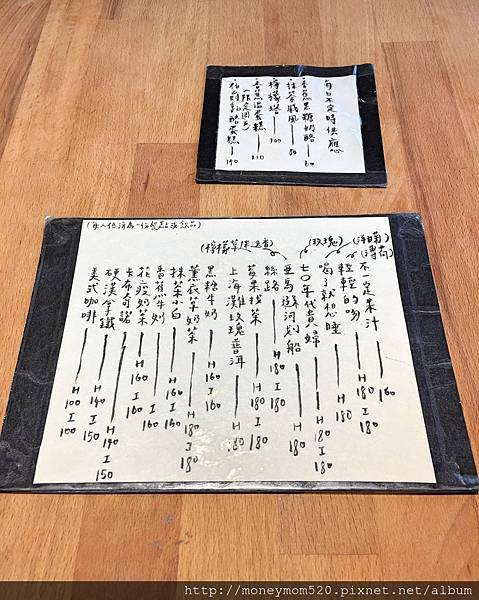 每日不定時供應
・香蕉黑糖奶酪 — 60
・抹茶戚風 — 80
・檸檬塔 — 100
・香蕉溫蛋糕 — 110
(限定週五)
・伯爵乳酪蛋糕 — 140
(每人低消為一份餐點或飲品)
不一定果汁 — 160
輕輕的吻 (洋甘菊 薄荷) — H 180 I 180
喝了就想睡 — H 180
七〇年代貴婦 (玫瑰) — H 180 I 180
亞馬遜河划船 (檸檬草 — 180
絲路 — H 180 I 180
上海灘玫瑰普洱 — H 180
黑糖牛奶 — H 160 I 160
薰衣草奶茶 — H 180 I 180
抹茶小白 — H 160 I 160
香蕉牛奶 — I 160
花痴奶茶 — H 160 I 160
卡布奇諾 — H 140
硬漢拿鐵 — H 140 I 150
美式咖啡 — H 100 I 100
http://moneymom520.pixnet.net/album